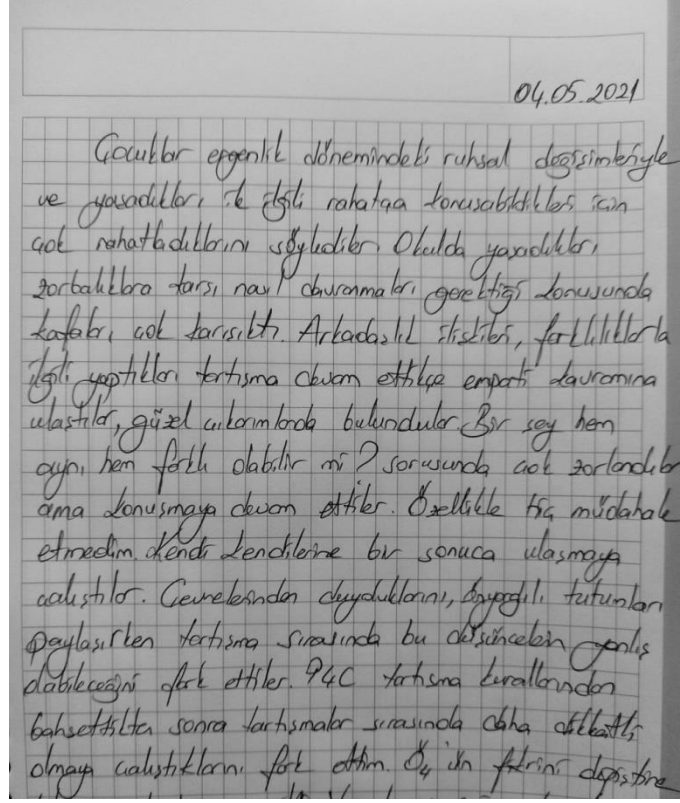 04.05.2021
Çocuklar ergenlik dönemindeki ruhsal değişimleriyle
ve yaşadıkları ile ilgili rahatça konuşabildikleri için
çok rahatladıklarını söylediler. Okulda yaşadıkları
zorbalıklara karşı nasıl davranmaları gerektiği konusunda
kafaları çok karışıktı. Arkadaşlık ilişkileri, farklılıklarla
ilgili yaptıkları tartışma devam ettikçe empati kavramına
ulaştılar, güzel çıkarımlarda bulundular. Bir şey hem
aynı hem farklı olabilir mi? sorusunda çok zorlandılar
ama konuşmaya devam ettiler. Özellikle hiç müdahale
etmedim. Kendi kendilerine bir sonuca ulaşmaya
çalıştılar. Çevrelerinden duyduklarını, önyargılı tutumları
paylaşırken tartışma sırasında bu düşüncelerin yanlış
olabileceğini fark ettiler. P4C tartışma kurallarından
bahsettikten sonra tartışmalar sırasında daha dikkatli
olmaya çalıştıklarını fark ettim. Ö4 ün fikrini değiştirme